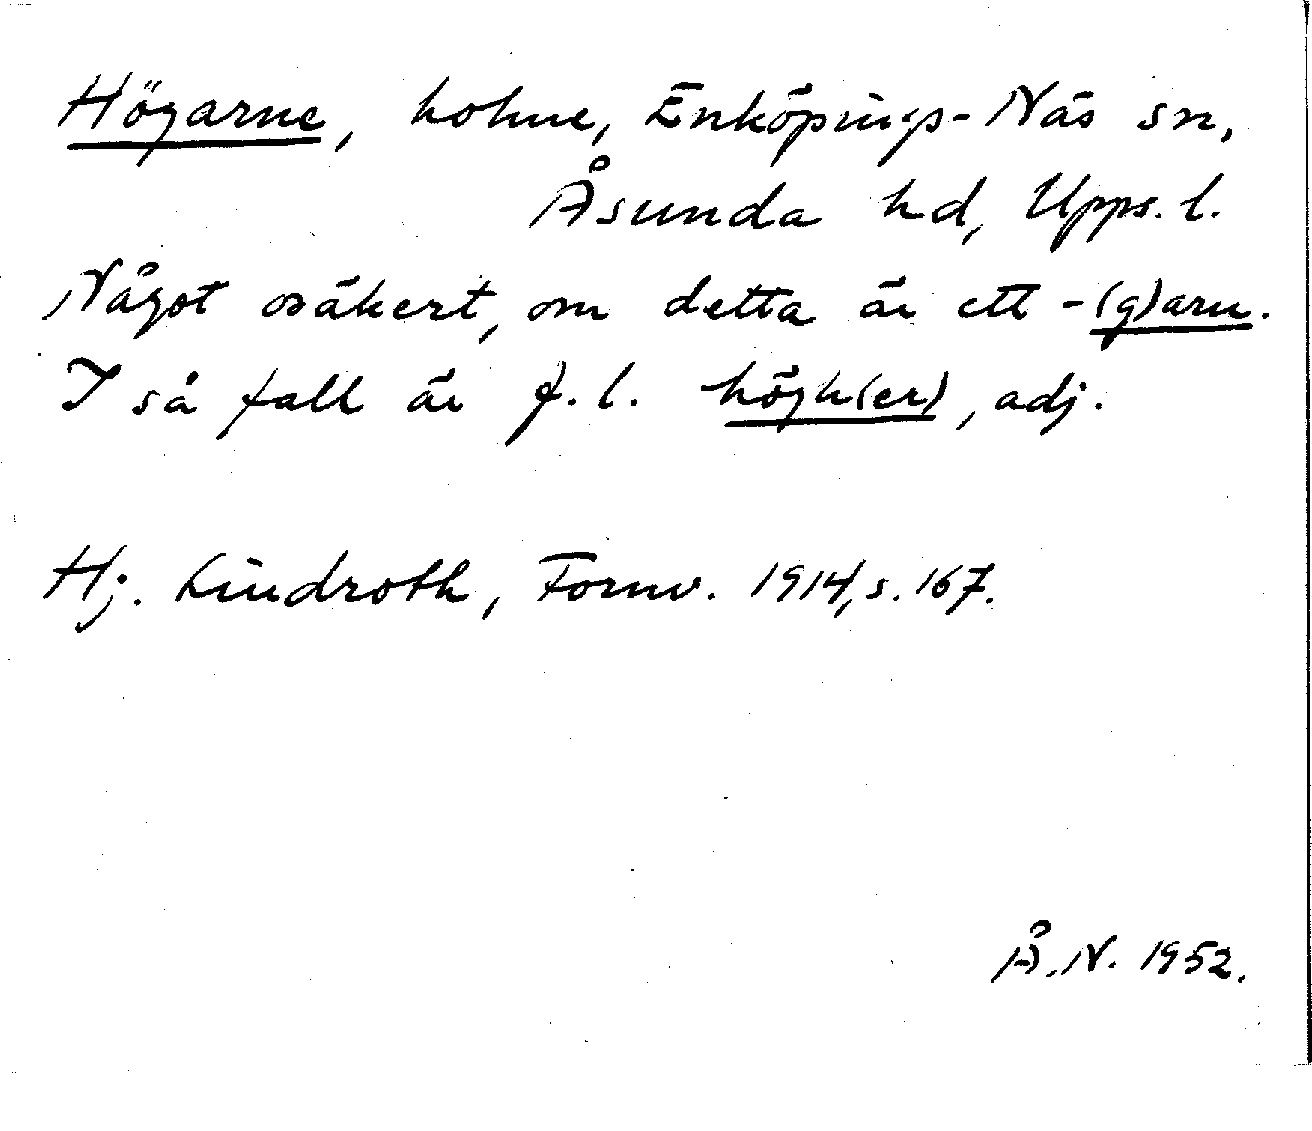 Högarne, holme, Enköpings-Näs sn,
Åsunda hd, Upps. l.
Något osäkert, om detta är ett -(g)arn.
I så fall är f. l. högh(er), adj.
Hj. Lindroth, Fornv. 1914, s. 167.
Å. N. 1952.